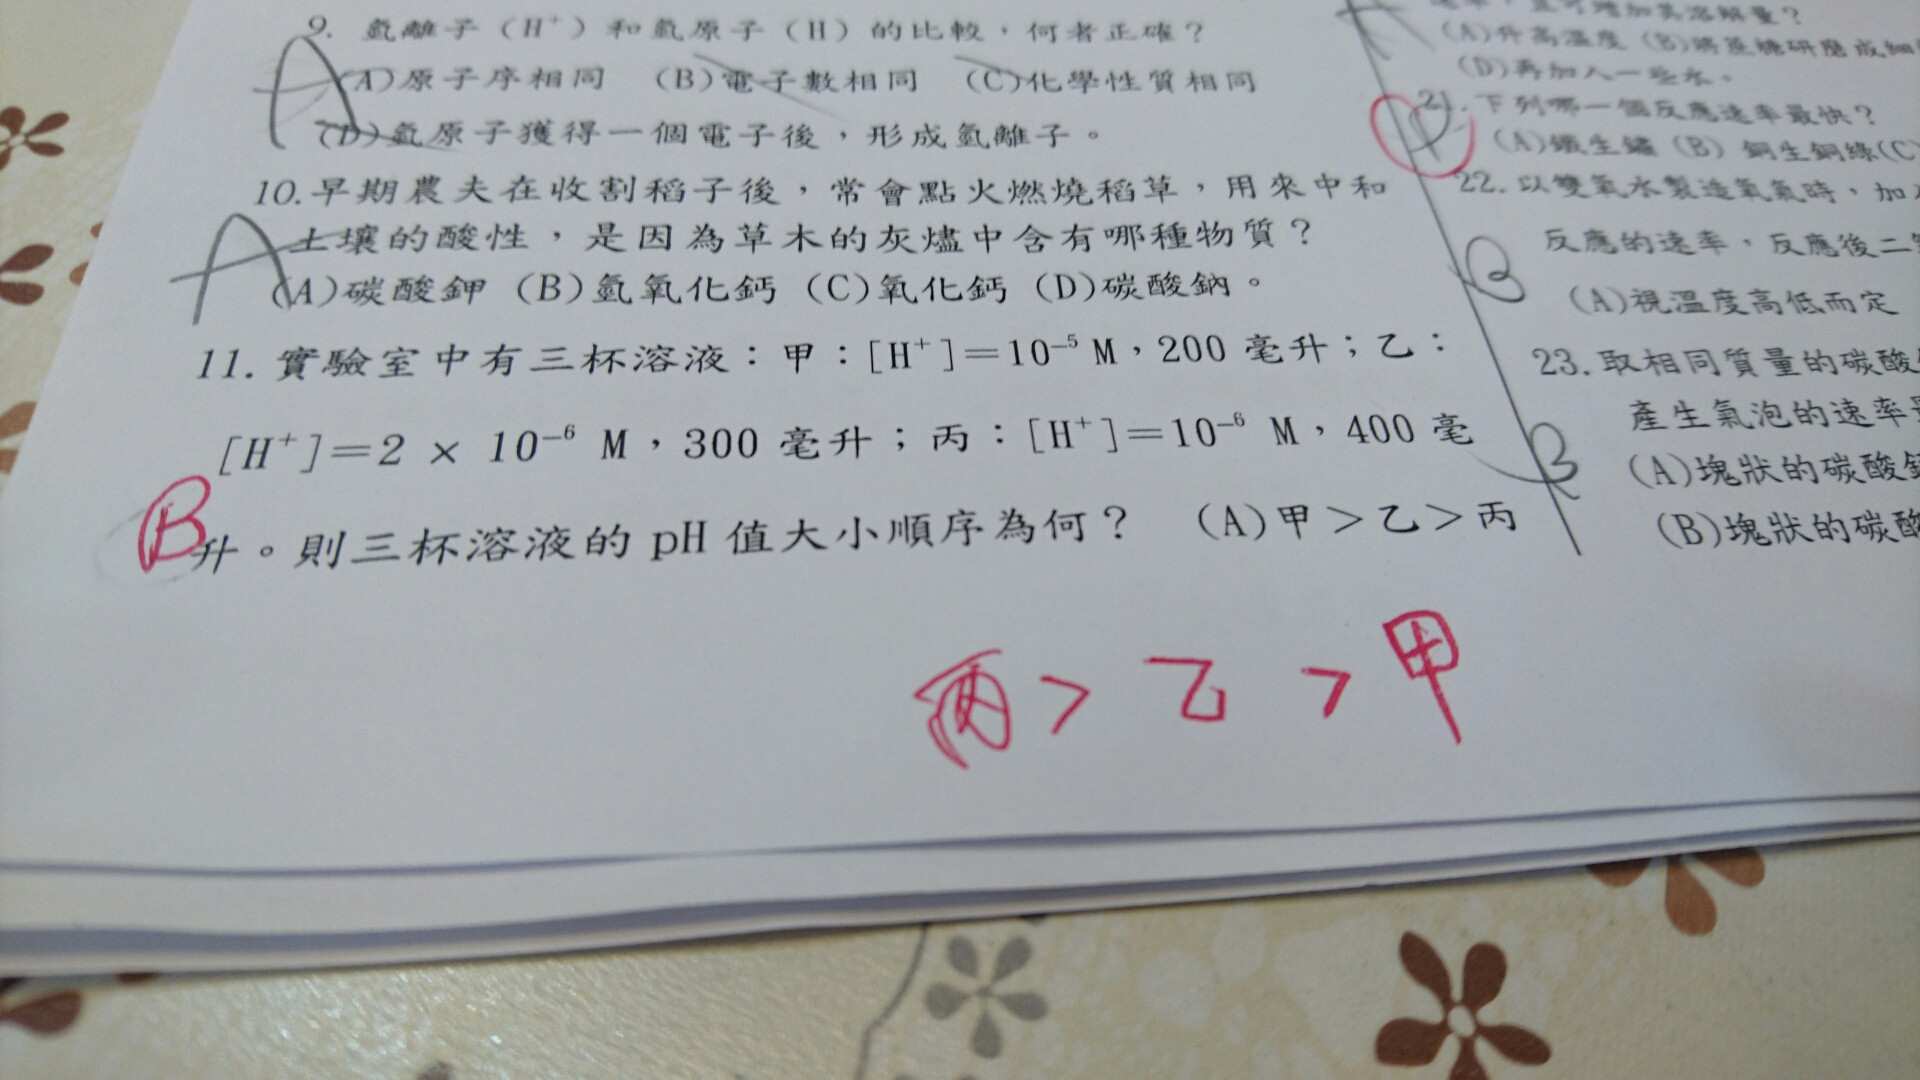 9. 氫離子(H⁺)和氫原子(H)的比較,何者正確?
A
(A)原子序相同 (B)電子數相同 (C)化學性質相同
(D)氫原子獲得一個電子後,形成氫離子。
10.早期農夫在收割稻子後,常會點火燃燒稻草,用來中和
A
土壤的酸性,是因為草木的灰燼中含有哪種物質?
(A)碳酸鉀 (B)氫氧化鈣 (C)氧化鈣 (D)碳酸鈉。
11. 實驗室中有三杯溶液:甲:[H⁺]=10⁻⁵ M,200 毫升;乙:
[H⁺]=2 × 10⁻⁶ M,300 毫升;丙:[H⁺]=10⁻⁶ M,400 毫
B
升。則三杯溶液的 pH 值大小順序為何? (A)甲>乙>丙
丙>乙>甲
(A)升高溫度 (B)將蔗糖研磨成細
(D)再加入一些水。
21.下列哪一個反應速率最快?
(A)鐵生鏽 (B) 銅生銅綠(C)
22.以雙氧水製造氧氣時,加
反應的速率,反應後二
B
(A)視溫度高低而定
23.取相同質量的碳酸
產生氣泡的速率
B
(A)塊狀的碳酸
(B)塊狀的碳酸